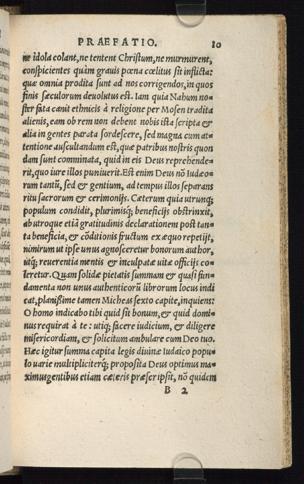 PRAEFATIO. 10
ne idola colant, ne tentent Christum, ne murmurent,
conspicientes quàm grauis pœna cœlitus sit inflicta:
quæ omnia prodita sunt ad nos corrigendos, in quos
finis sæculorum deuolutus est. Iam quia Nahum no-
ster fata canit ethnicis à religione per Mosen tradita
alienis, eam ob rem non debent nobis ista scripta &
alia in gentes parata sordescere, sed magna cum at-
tentione auscultandum est, quæ patribus nostris quon
dam sunt comminata, quid in eis Deus reprehende-
rit, quo iure illos puniuerit. Est enim Deus nō Iudæo-
rum tantū, sed & gentium, ad tempus illos separans
ritu sacrorum & cerimonijs. Cæterum quia utrunq;
populum condidit, plurimisq; beneficijs obstrinxit,
ab utroque etiā gratitudinis declarationem post tan-
ta beneficia, & cōditionis fructum ex æquo repetijt,
nimirum ut ipse unus agnosceretur bonorum author,
utq; reuerentia mentis & inculpatæ uitæ officijs co-
leretur. Quam solidæ pietatis summam & quasi fun-
damenta non unus authenticorū librorum locus indi
cat, planissime tamen Micheas sexto capite, inquiens:
O homo indicabo tibi quid sit bonum, & quid domi-
nus requirat à te: utiq; facere iudicium, & diligere
misericordiam, & solicitum ambulare cum Deo tuo.
Hæc igitur summa capita legis diuinæ Iudaico popu-
lo uarie multipliciterq; proposita Deus optimus ma-
ximus gentibus etiam cæteris præscripsit, nō quidem
B 2